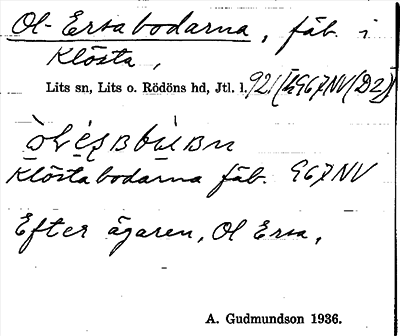 Ol-Ersabodarna, fäb. i
Klösta,
Lits sn, Lits o. Rödöns hd, Jtl. l.
Klöstabodarna fäb. 967NV
Efter ägaren, Ol Ersa.
A. Gudmundson 1936.